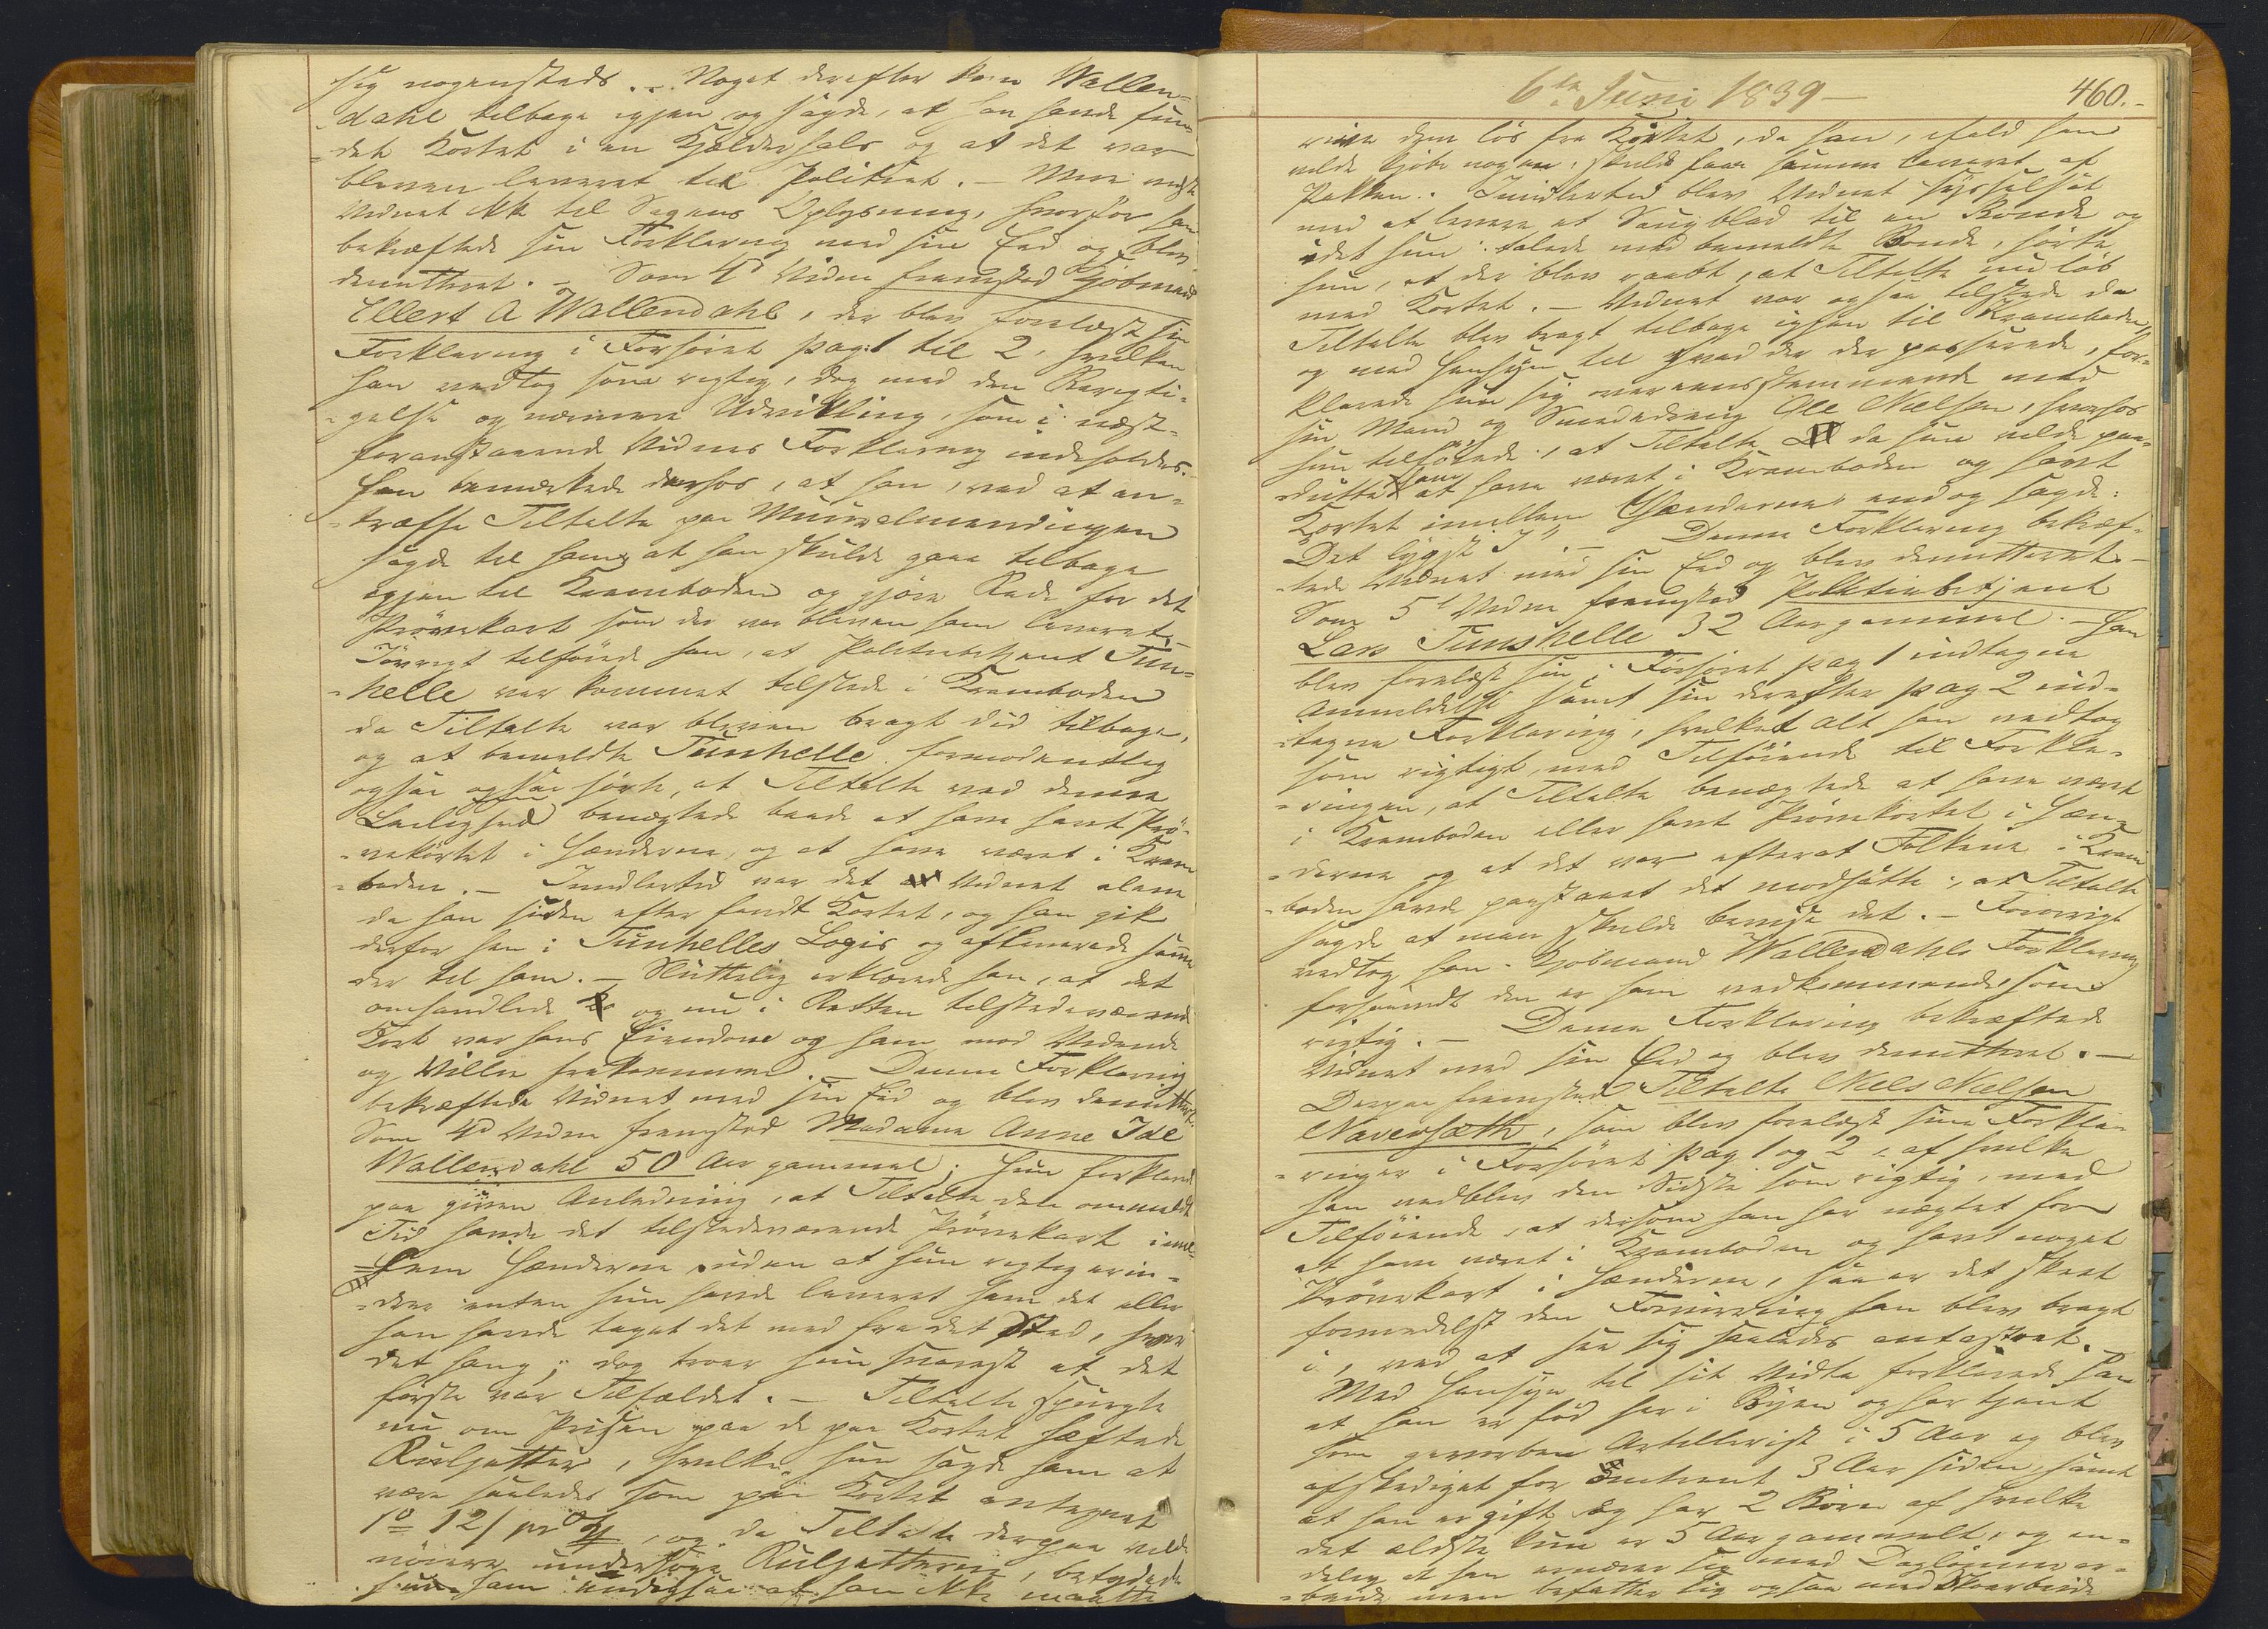 sig nogensteds. Noget derefter kom Wallen-
-dahl tilbage igjen og sagde, at han havde fun-
-det Kortet i en Kjelderhals og at det var
bleven leveret til Politiet. – Mere vidste
Vidnet ikke til Sagens Oplysning, hvorfor han
bekræftede sin Forklaring med sin Eed og blev
demitteret. – Som 3d Vidne fremstod Kjøbmand
Ellert A Wallendahl, der blev forelæst sin
Forklaring i Forhøret pag: 1 til 2, hvilken
han vedtog som rigtig, dog med den Berigti-
-gelse og nærmere Udvikling, som i næst-
foranstaaende Vidnes Forklaring indeholdes.
Han bemærkede derhos, at han, ved at an-
-træffe Tiltalte paa Muuralmendingen
sagde til ham, at han skulde gaae tilbage
igjen til Kramboden og gjøre Rede for det
Prøvekart som der var bleven ham leveret. –
Iøvrigt tilføiede han, at Politiebetjent Tun-
-helle var kommet tilstede i Kramboden
da Tiltalte var bleven bragt did tilbage,
og at bemeldte Tunhelle formodentlig
ogsaa ogsaa hørte, at Tiltalte ved denne
Leilighed benægtede baade at have havt Prø-
-vekortet i Hænderne, og at have været i Kram
-boden. – Imidlertid var det Vidnet alene
da han siden efter fandt Kortet, og han gik
derfor hen i Tunhelles Logis og afleverede samme
der til ham. – Sluttelig erklærede han, at det
omhandlede og nu i Retten tilstedeværende
Kort var hans Eiendom og ham mod Vidende
og Villie frakommen. – Denne Forklaring
bekræftede Vidnet med sin Eed og blev demitteret.
Som 4d Vidne fremstod Madame Anne Ide
Wallendahl 50 Aar gammel; hun forklarede
paa given Anledning, at Tiltalte den ommeldte
Tid havde det tilstedeværende Prøvekart imel-
-lem Hænderne uden at hun rigtig erin-
-drer enten hun havde leveret ham det eller
han havde taget det ned fra det Sted, hvor
det hang; dog troer hun snarest at det
første var Tilfældet. – Tiltalte spurgte
nu om Prisen paa de paa Kortet hæftede
Rulsetter, hvilke hun sagde ham at
være saaledes som paa Kortet antegnet
og da Tiltalte derpaa vilde
nøiere undersøge Rulsetterne, betydede
hun ham imidlertid at han ikke maatte
6te Juni 1839 –
460. –
rive dem løs fra Kortet, da han, ifald han
vilde kjøbe nogen, skulde faae samme leveret af
Pakken. Imidlertid blev Vidnet sysselsat
med at levere et Saugblad til en Bonde og
idet hun talede med bemeldte Bonde, hørte
hun, at der blev raabt, at Tiltalte nu løb
med Kortet. – Vidnet var ogsaa tilstede da
Tiltalte blev bragt tilbage igjen til Kramboden,
og med Hensyn til hvad der der passerede, for-
klarede hun sig overeensstemmende med
sin Mand og Smededreng Ole Nielsen, hvorhos
hun tilføiede, at Tiltalte da hun vilde paa-
dutte ham at have været i Kramboden og havt
Kortet imellem Hænderne, endog sagde:
"Det lygst I". – Denne Forklaring bekræf-
-tede Vidnet med sin Eed og blev demitteret. –
Som 5t Vidne fremstod Politiebetjent
Lars Tunshelle 32 Aar gammel. – Han
blev forelæst sin i Forhøret pag 1 indtagne
Anmeldelse samt sin derefter pag 2 ind-
-tagne Forklaring, hvilket Alt han vedtog
som rigtigt, med Tilføiende til Forkla-
-ringen, at Tiltalte benægtede at have været
i Kramboden eller havt Prøvekortet i Hæn-
-derne og at det var efterat Folkene i Kram
-boden havde paastaaet det modsatte, at Tiltalte
sagde at man skulde bevise det. – Forøvrigt
vedtog han Kjøbmand Wallendahls Forklaring
forsaavidt den er ham vedkommende, som
rigtig. – Denne Forklaring bekræftede
Vidnet med sin Eed og blev demitteret. –
Derpaa fremstod Tiltalte Niels Nielsen
Naversæth, som blev forelæst sine Forkla-
-ringer i Forhøret pag 1 og 2, af hvilke
han vedblev den Sidste som rigtig, med
Tilføiende, at dersom han har nægtet for
at have været i Kramboden og havt noget
Prøvekart i Hænderne, saa er det skeet
formedelst den Forvirring han blev bragt
i, ved at see sig saaledes antastet.
Med Hensyn til sit Vidre forklarede han
at han er fød her i Byen og har tjent
som gevorben Artillerist i 5 Aar og blev
afskediget for omtrent 3 Aar siden, samt
at han er gift, og har 2 Børn af hvilke
det ældste kun er 5 Aar gammelt, og en-
delig at han ernærer sig med Dagløn­ner ar-
-beide men befatter sig ogsaa med Skoarbeide